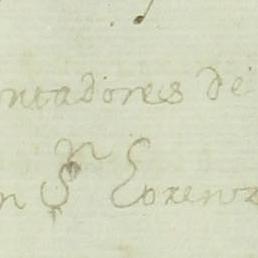 ontadores de
n Sn Lorenz